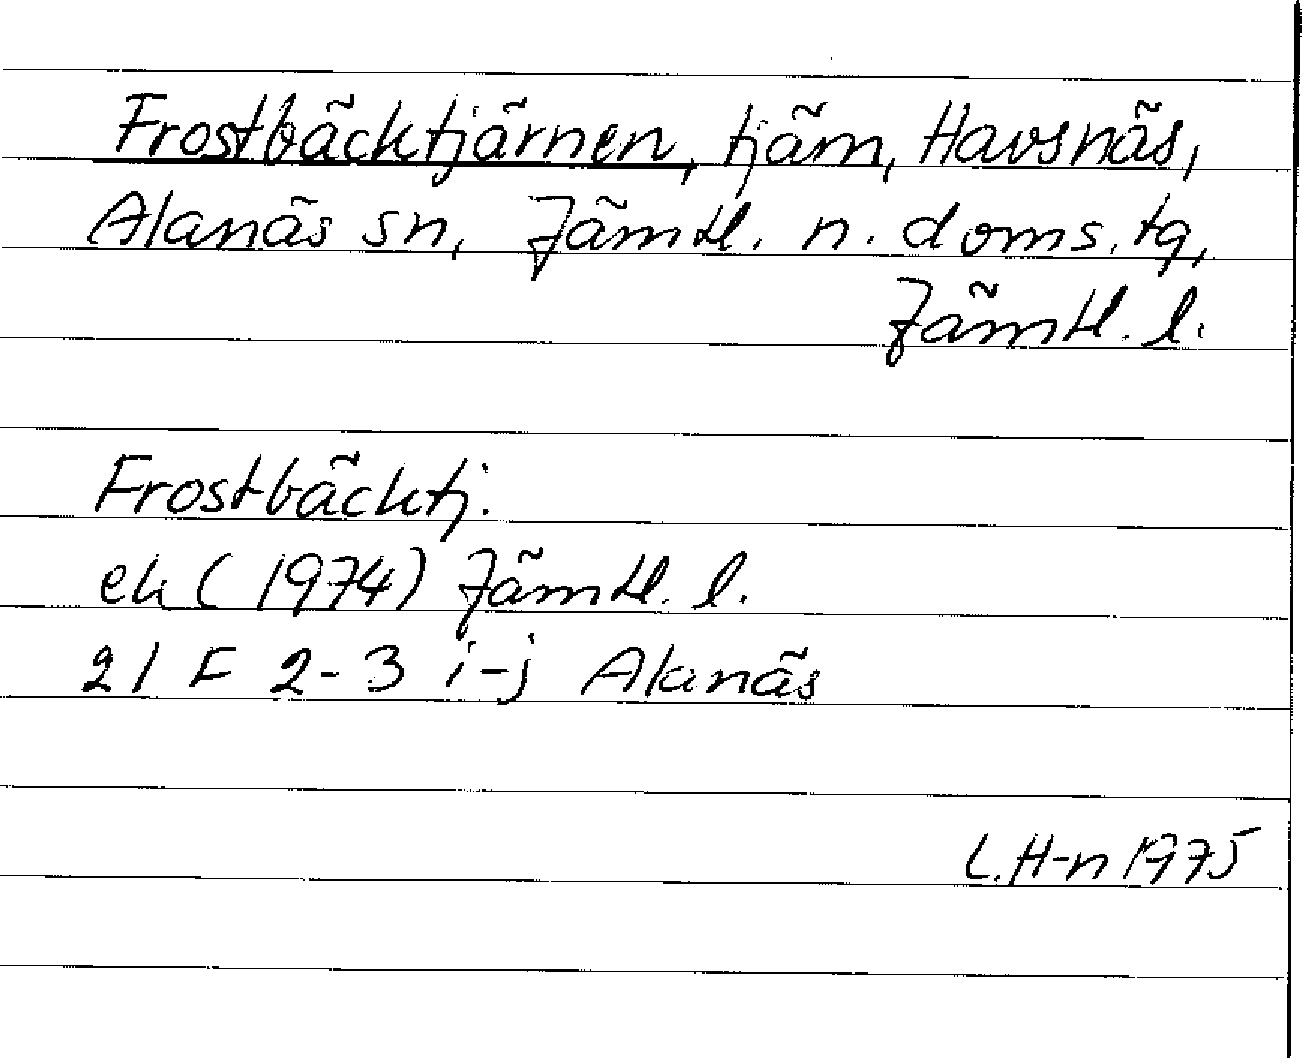 Frostbäcktjärnen, tjärn, Havsnäs,
Alanäs sn, Jämtl. n. doms. tg,
Jämtl. l.
Frostbäcktj.
ek (1974) Jämtl. l.
21 F 2-3 i-j Alanäs
L. H-n 1975